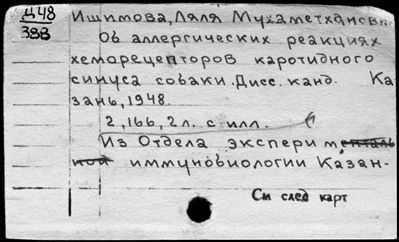 Д48
388
Ишимова, Ляля Мухаметхановн.
Об аллергических реакциях
хеморецепторов каротидного
синуса собаки. Дисс. канд. Ка
зань, 1948.
2, 166, 2 л. с илл.
Из Отдела экспери менталь
ной иммунобиологии Казан-
См след карт